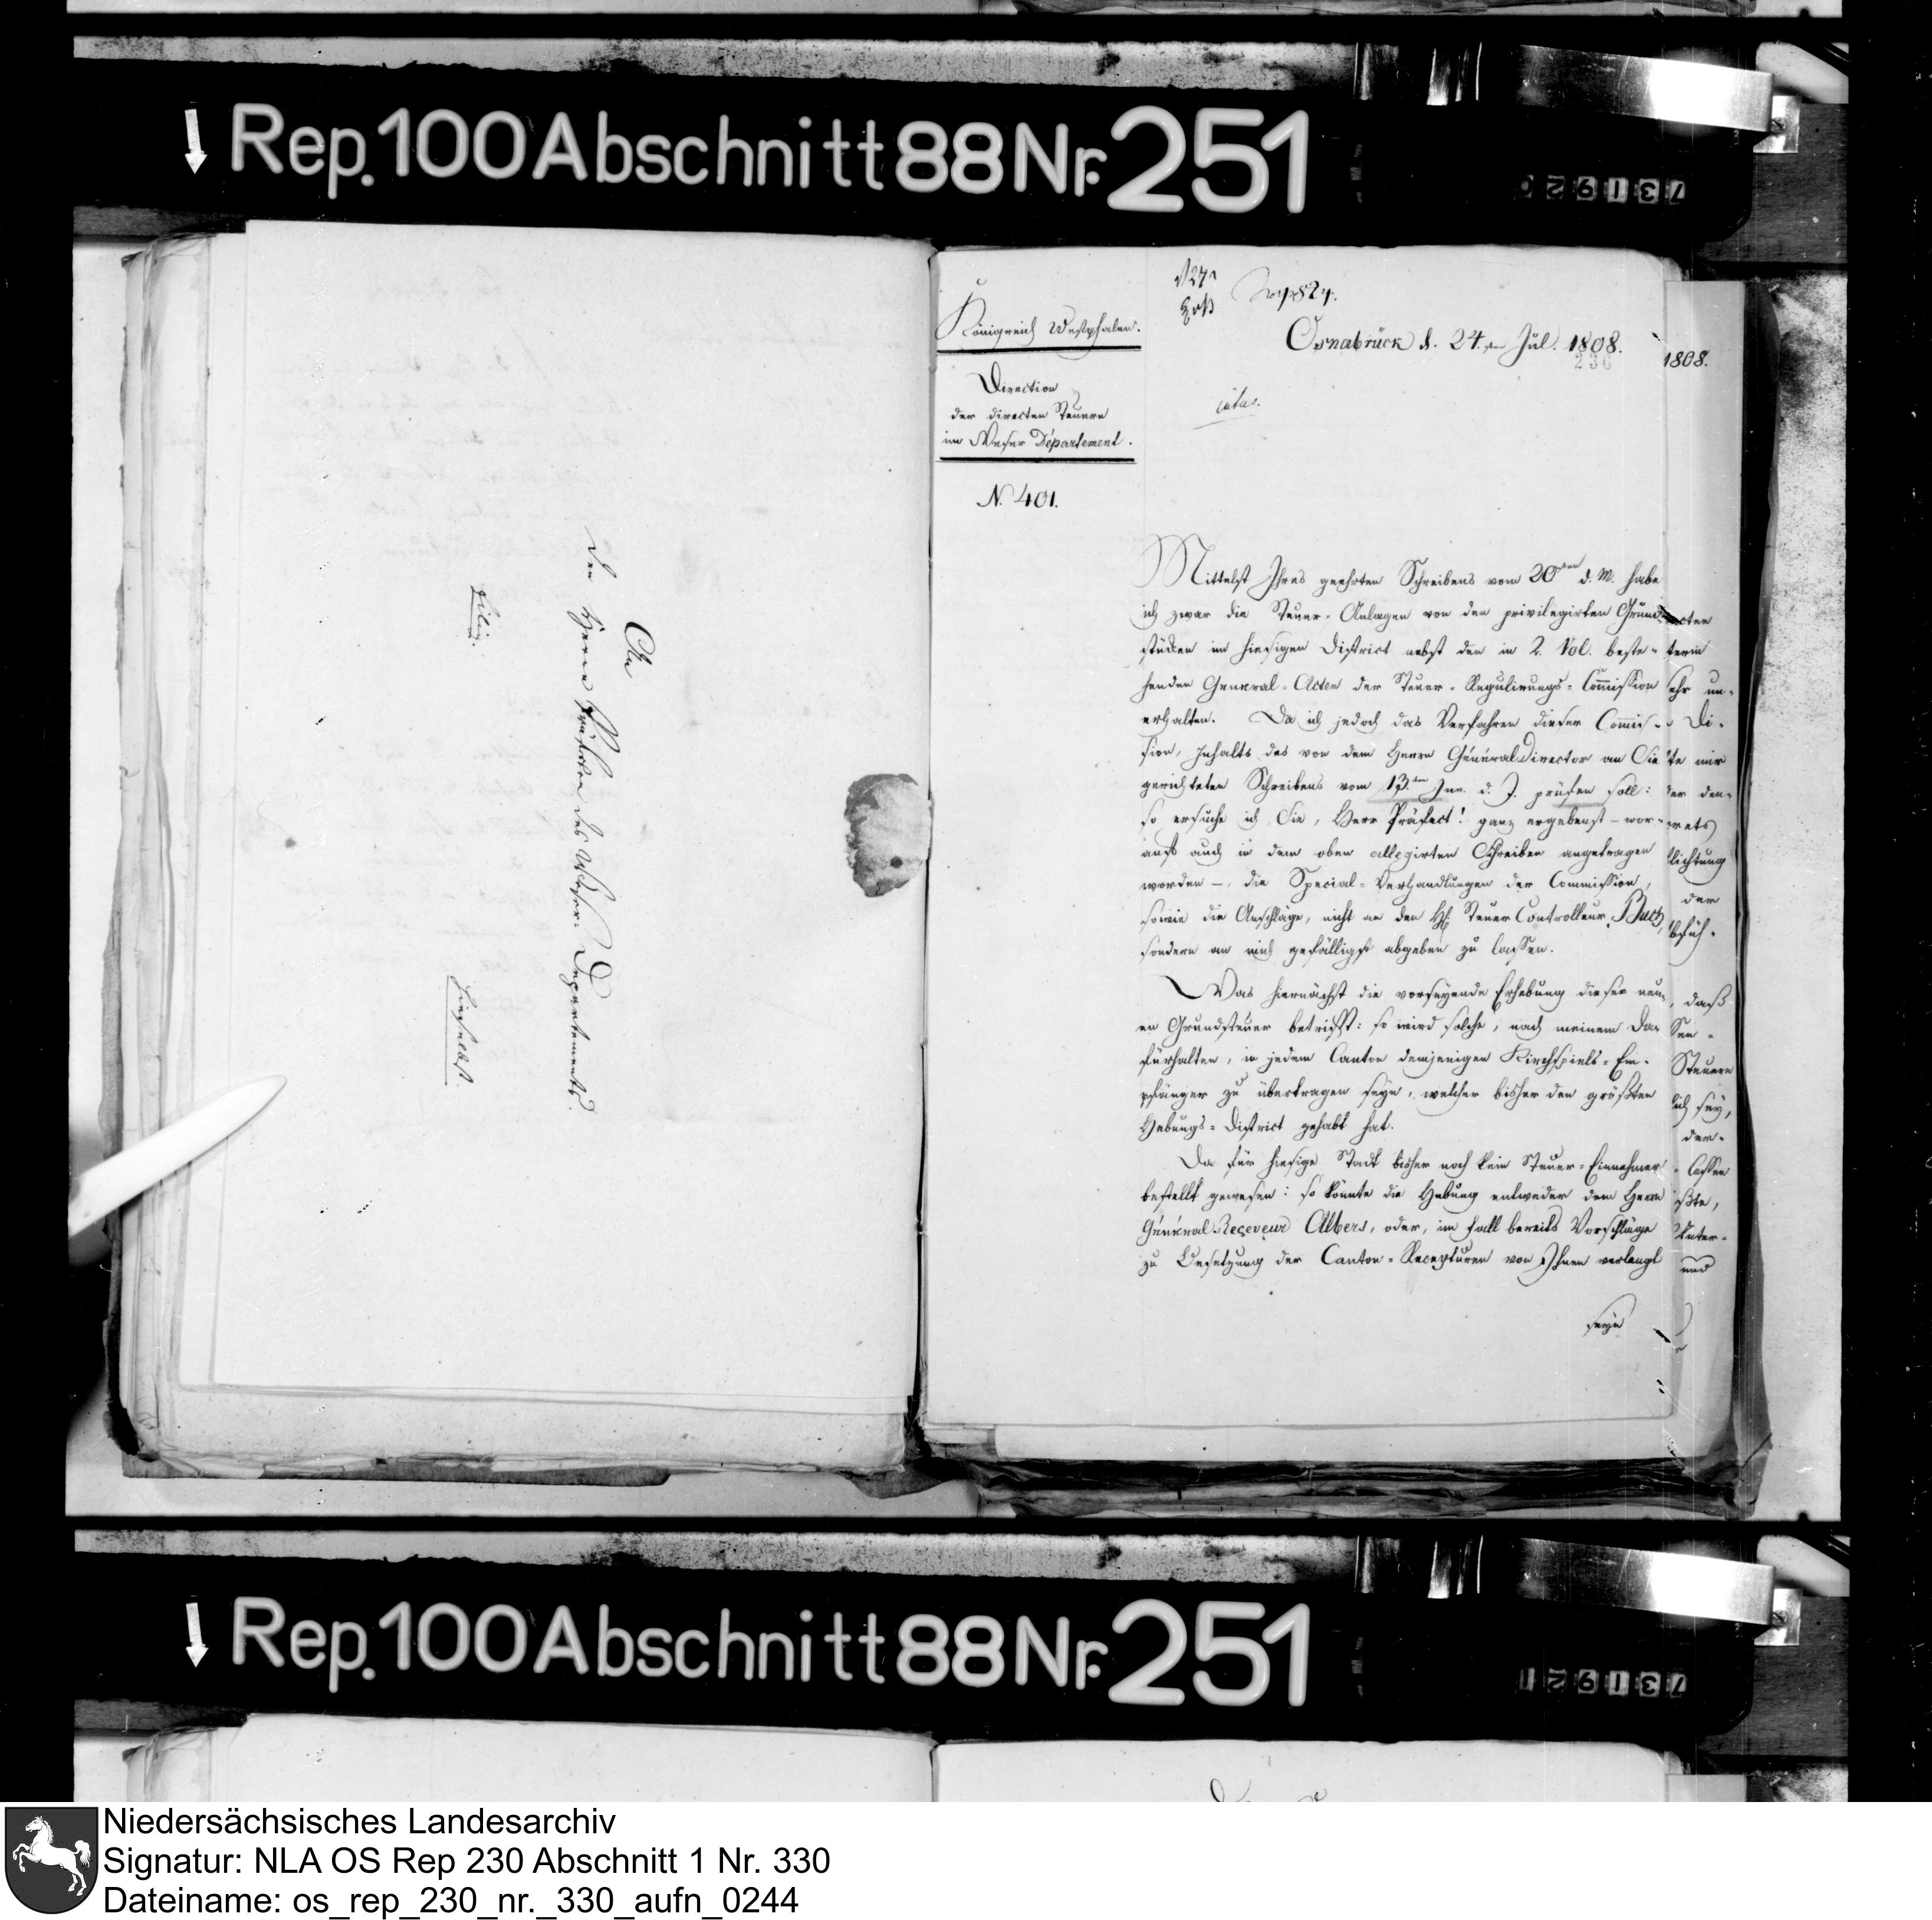 Rep. 100 Abschnitt 88 Nr. 251
731920
An
den Herrn Präfecten des Weser-Departements
hieselbst.
Königreich Westphalen.
Direction
der directen Steuern
im Weser Département.
N. 401.
Osnabrück d. 24.ten Jul. 1808.
230
Mittelst Ihres geehrten Schreibens vom 20ten d. M. habe
ich zwar die Steuer-Anlagen von den privilegirten Grund-
stücken im hiesigen District nebst den in 2. Vol. beste-
henden General-Acten der Steuer-Regulirungs-Commission
erhalten. Da ich jedoch das Verfahren dieser Commis-
sion, Inhalts des von dem Herrn Généraldirector an Sie
gerichteten Schreibens vom 13.ten Jun. d. J. prüfen soll:
so ersuche ich Sie, Herr Präfect! ganz ergebenst - wor-
auf auch in dem oben allegirten Schreiben angetragen
worden -, die Special-Verhandlungen der Commission,
sowie die Anschläge, nicht an den H. Steuer Controlleur
sondern an mich gefälligst abgeben zu lassen.
Was hiernächst die vorseyende Erhebung dieser neu-
en Grundsteuer betrifft: so wird solche, nach meinem Da-
fürhalten, in jedem Canton demjenigen Kirchspiels-Em-
pfänger zu übertragen seyn, welcher bisher den größten
Hebungs-District gehabt hat.
Da für hiesige Stadt bisher noch kein Steuer-Einnehmer
bestellt gewesen: so könnte die Hebung entweder dem Herrn
Général-Receveur Albers, oder, im Fall bereits Vorschläge
zu Besetzung der Canton-Recepturen von Ihnen verlangt
seyn
1808.
cten
terin
sehr un-
Di-
te mir
der den-
rets
lichtung
der
bfüh-
daß
Steuern
ich sey,
der-
lassen
ßte,
Unter-
und
Rep. 100 Abschnitt 88 Nr. 251
731921
Niedersächsisches Landesarchiv
Signatur: NLA OS Rep 230 Abschnitt 1 Nr. 330
Dateiname: os_rep_230_nr._330_aufn_0244